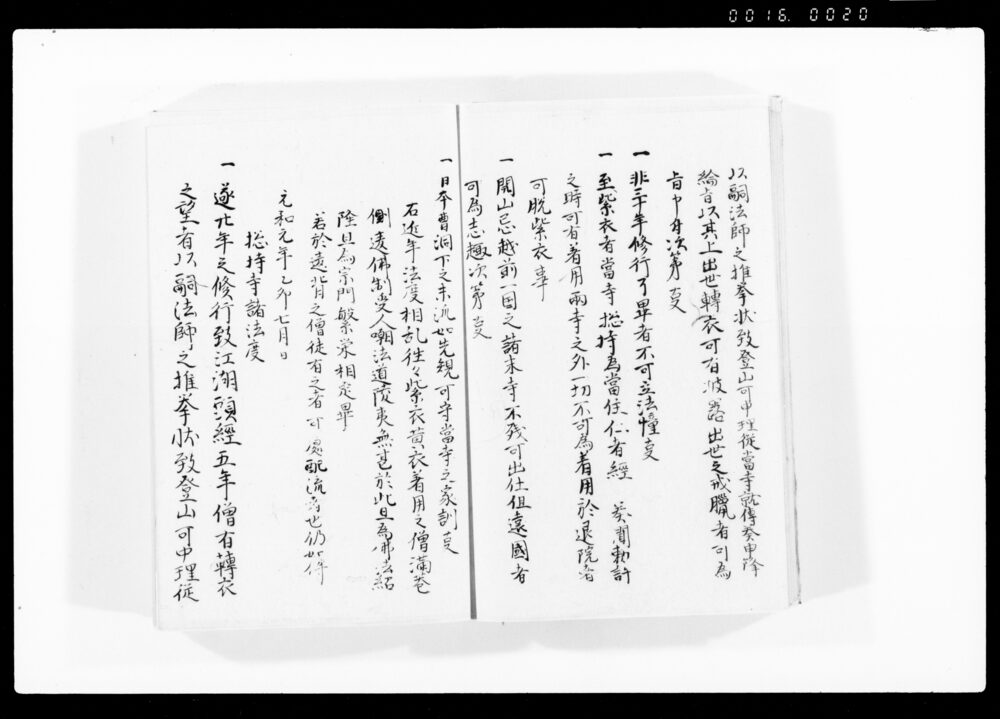 0016. 0020
以嗣法師之推挙状致登山可申理従當寺就傳奏申降
綸旨以其上出世轉衣可有披露出世之戒臘者可為
旨申舟次第叓
一 非三十年修行了畢者不可立法幢叓
一 至紫衣者當寺捴持為當住仁者経 奏聞勅許
之時可有着用両寺之外一切不可為着用於退院者
可脱紫衣事
一 開山忌越前一国之諸末寺不残可出仕但遠國者
可為志趣次第叓
一 日本曹洞下之末流如先規可守當寺之家訓叓
右近年法度相乱往々紫衣黄衣着用之僧満巷
側違佛制受人嘲法道陵夷無甚於此且為佛法紹
隆且為宗門繁栄相定畢
若於違背之僧徒有之者可處配流者也仍如件
元和元年乙卯七月日
捴持寺諸法度
一 遂廾年之修行致江湖頭経五年僧有轉衣
之望者以嗣法師之推挙状致登山可申理従